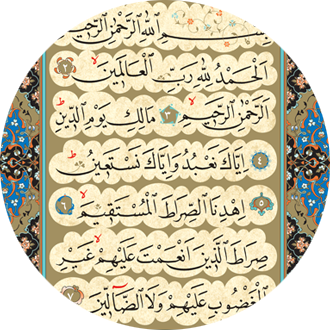 بِسْمِ اللهِ الرَّحْمٰنِ الرَّحِيمِ
اَلْحَمْدُ لِلّٰهِ رَبِّ الْعَالَمِينَ ٢
اَلرَّحْمٰنِ الرَّحِيمِ ٣ مَالِكِ يَوْمِ الدِّينِ
اِيَّاكَ نَعْبُدُ وَاِيَّاكَ نَسْتَعِينُ ٤
٥ اِهْدِنَا الصِّرَاطَ الْمُسْتَقِيمَ ٦
صِرَاطَ الَّذِينَ اَنْعَمْتَ عَلَيْهِمْ غَيْرِ
الْمَغْضُوبِ عَلَيْهِمْ وَلَا الضَّالِّينَ ٧